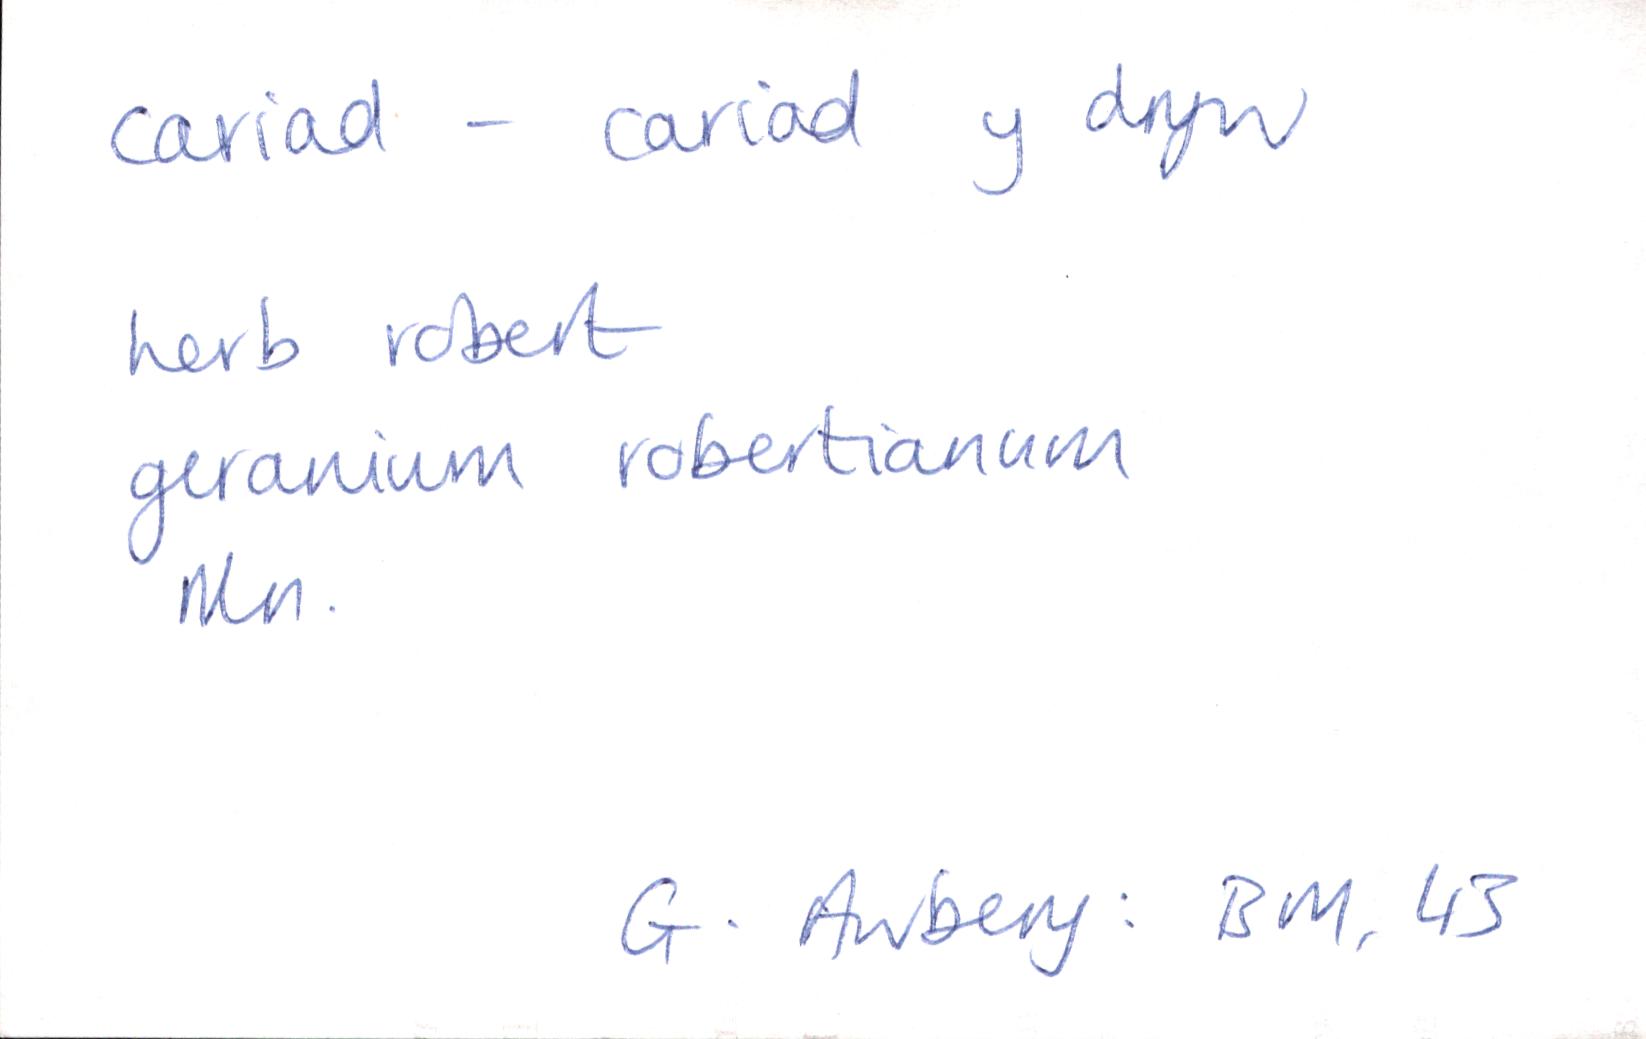 cariad - cariad y dryw
herb robert
geranium robertianum
Mln.
G. Awbery: BM, 43